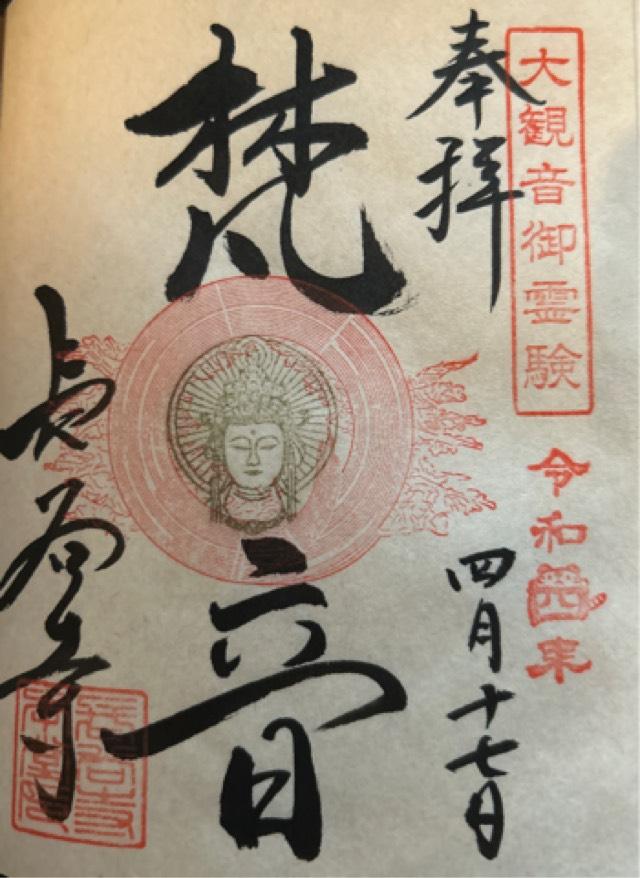 大観音御霊験
令和四年
奉拝
四月十七日
梵音
長谷寺